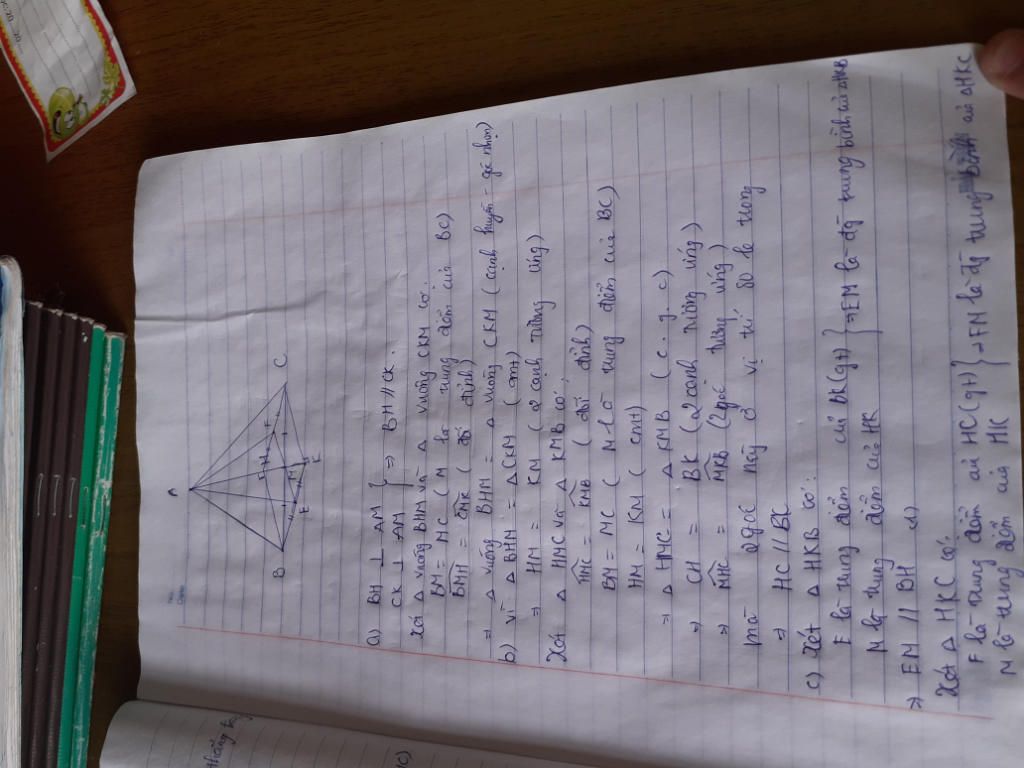 A
B
C
H
F
M
E
K
a) BH ⊥ AM
CK ⊥ AM } ⇒ BH // CK.
Xét Δ vuông BHM và Δ vuông CKM có:
BM = MC ( M là trung điểm của BC)
BMH = CMK ( đối đỉnh)
⇒ Δ vuông BHM = Δ vuông CKM ( cạnh huyền - góc nhọn)
b) Vì Δ BHM = Δ CKM ( cmt)
⇒ HM = KM ( 2 cạnh tương ứng)
Xét Δ HMC và Δ KMB có:
HMC = KMB ( đối đỉnh)
BM = MC ( M là trung điểm của BC)
HM = KM ( cmt)
⇒ Δ HMC = Δ KMB ( c. g. c)
⇒ CH = BK ( 2 cạnh tương ứng)
⇒ MHC = MKB ( 2 góc tương ứng)
mà 2 góc này ở vị trí so le trong
⇒ HC // BK
c) Xét Δ HKB có:
E là trung điểm của BK (gt)
M là trung điểm của HK } ⇒ EM là đg trung bình của ΔHKB
⇒ EM // BH (1)
Xét Δ HKC có:
F là trung điểm của HC (gt) } ⇒ FM là đg trung bình của ΔHKC
M là trung điểm của HK